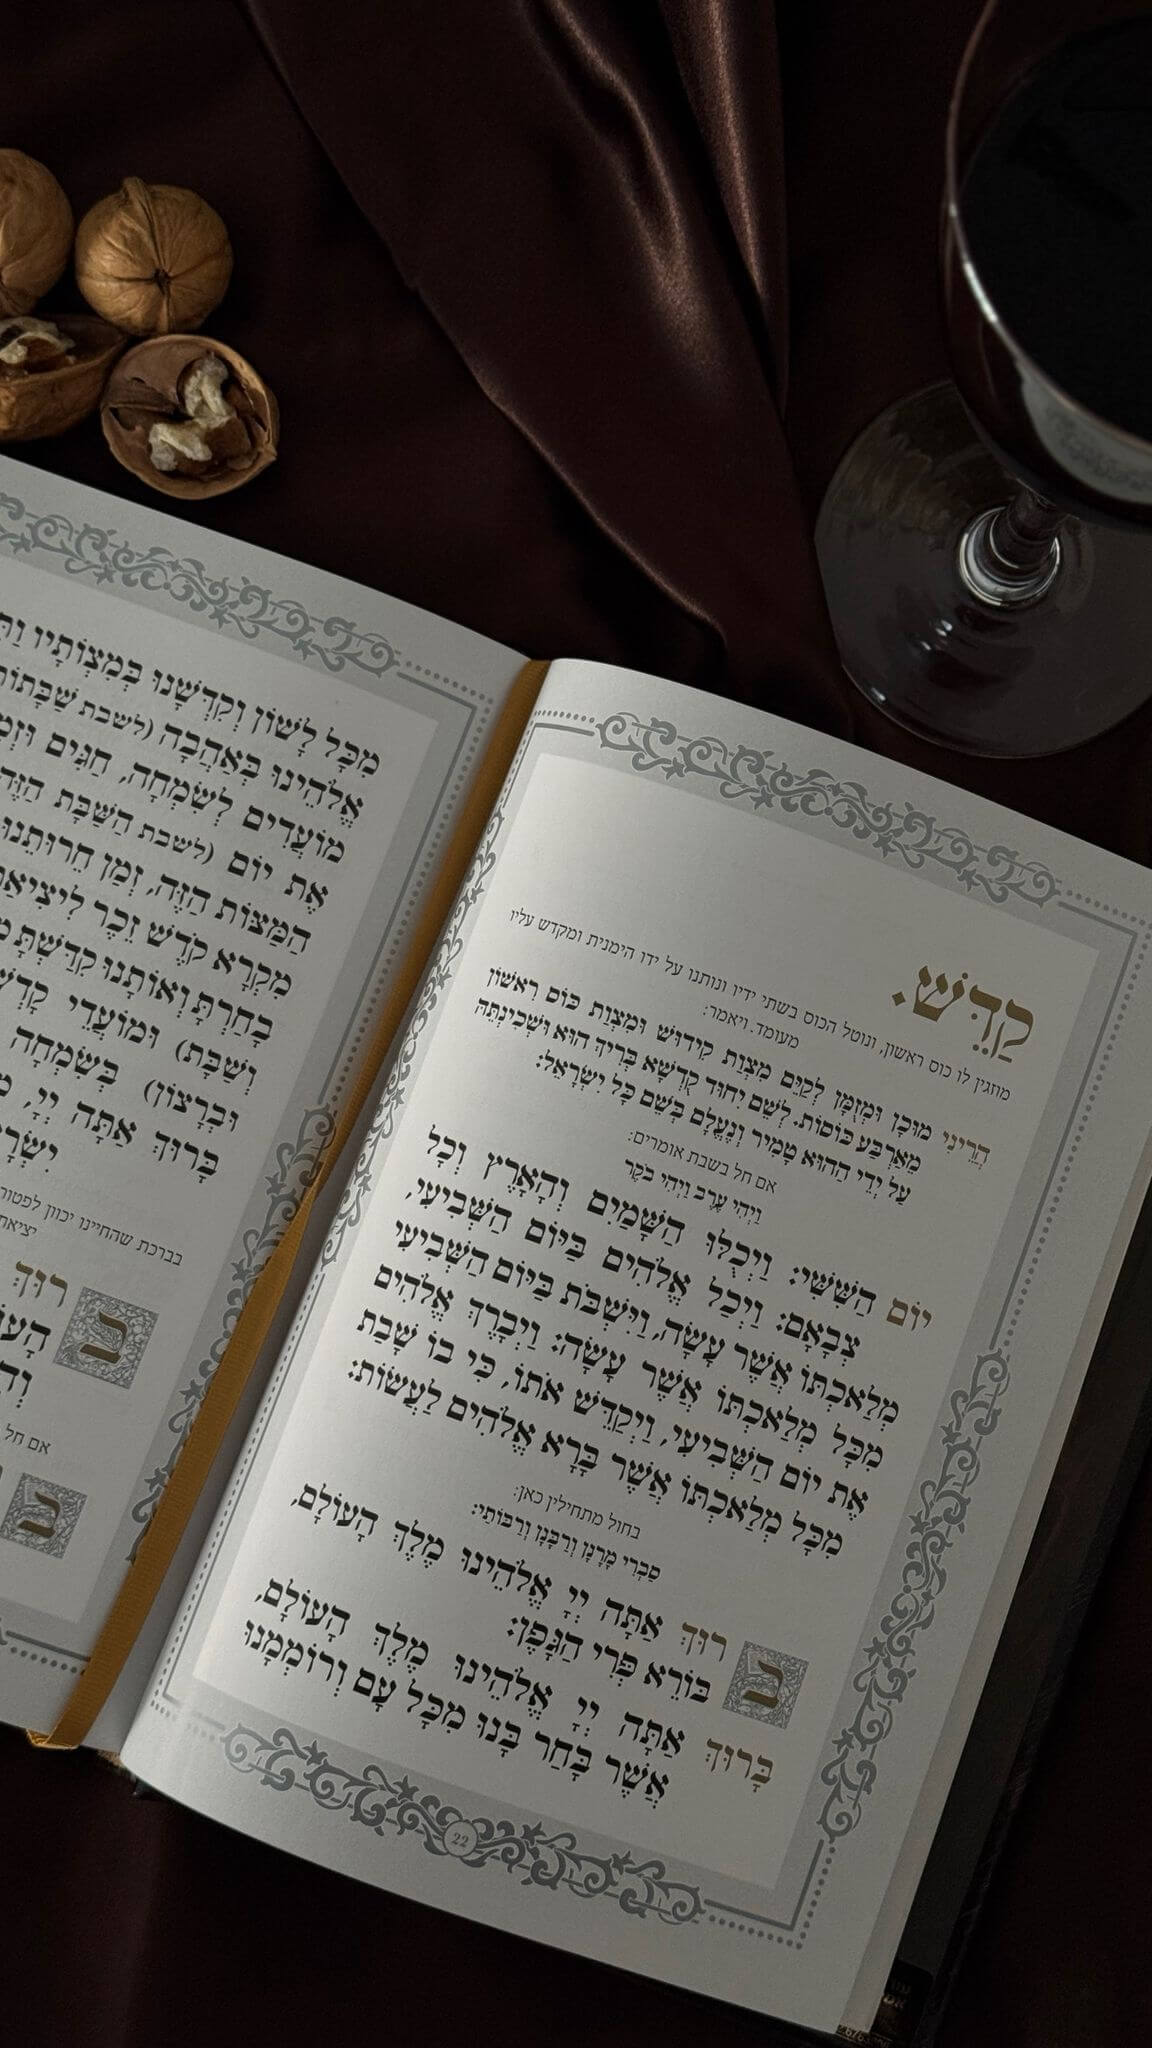 קַדֵּשׁ.
מוזגין לו כוס ראשון, ונוטל הכוס בשתי ידיו ונותנו על ידו הימנית ומקדש עליו
מעומד. ויאמר:
הֲרֵינִי מוּכָן וּמְזֻמָּן לְקַיֵּם מִצְוַת קִידּוּשׁ וּמִצְוַת כּוֹס רִאשׁוֹן
מֵאַרְבַּע כּוֹסוֹת. לְשֵׁם יִחוּד קֻדְשָׁא בְּרִיךְ הוּא וּשְׁכִינְתֵּהּ
עַל יְדֵי הַהוּא טָמִיר וְנֶעֱלָם בְּשֵׁם כָּל יִשְׂרָאֵל:
אם חל בשבת אומרים:
וַיְהִי עֶרֶב וַיְהִי בֹקֶר
יוֹם הַשִּׁשִּׁי: וַיְכֻלּוּ הַשָּׁמַיִם וְהָאָרֶץ וְכָל
צְבָאָם: וַיְכַל אֱלֹהִים בַּיּוֹם הַשְּׁבִיעִי,
מְלַאכְתּוֹ אֲשֶׁר עָשָׂה, וַיִּשְׁבֹּת בַּיּוֹם הַשְּׁבִיעִי
מִכָּל מְלַאכְתּוֹ אֲשֶׁר עָשָׂה: וַיְבָרֶךְ אֱלֹהִים
אֶת יוֹם הַשְּׁבִיעִי, וַיְקַדֵּשׁ אֹתוֹ, כִּי בוֹ שָׁבַת
מִכָּל מְלַאכְתּוֹ אֲשֶׁר בָּרָא אֱלֹהִים לַעֲשׂוֹת:
בחול מתחילין כאן:
סַבְרִי מָרָנָן וְרַבָּנָן וְרַבּוֹתַי:
בָּרוּךְ אַתָּה יְיָ אֱלֹהֵינוּ מֶלֶךְ הָעוֹלָם,
בּוֹרֵא פְּרִי הַגָּפֶן:
בָּרוּךְ אַתָּה יְיָ אֱלֹהֵינוּ מֶלֶךְ הָעוֹלָם,
אֲשֶׁר בָּחַר בָּנוּ מִכָּל עָם וְרוֹמְמָנוּ
22
מִכָּל לָשׁוֹן וְקִדְּשָׁנוּ בְּמִצְוֹתָיו
אֱלֹהֵינוּ בְּאַהֲבָה (לשבת
מוֹעֲדִים לְשִׂמְחָה, חַגִּים
אֶת יוֹם (לשבת הַשַּׁבָּת הַזֶּה
הַמַּצּוֹת הַזֶּה, זְמַן חֵרוּתֵנוּ
מִקְרָא קֹדֶשׁ זֵכֶר
בָחַרְתָּ וְאוֹתָנוּ קִדַּשְׁתָּ
וְשַׁבָּת) וּמוֹעֲדֵי
וּבְרָצוֹן) בְּשִׂמְחָה
בָּרוּךְ אַתָּה יְיָ,
בברכת שהחיינו יכוון לפטור
בָּרוּךְ
אם חל